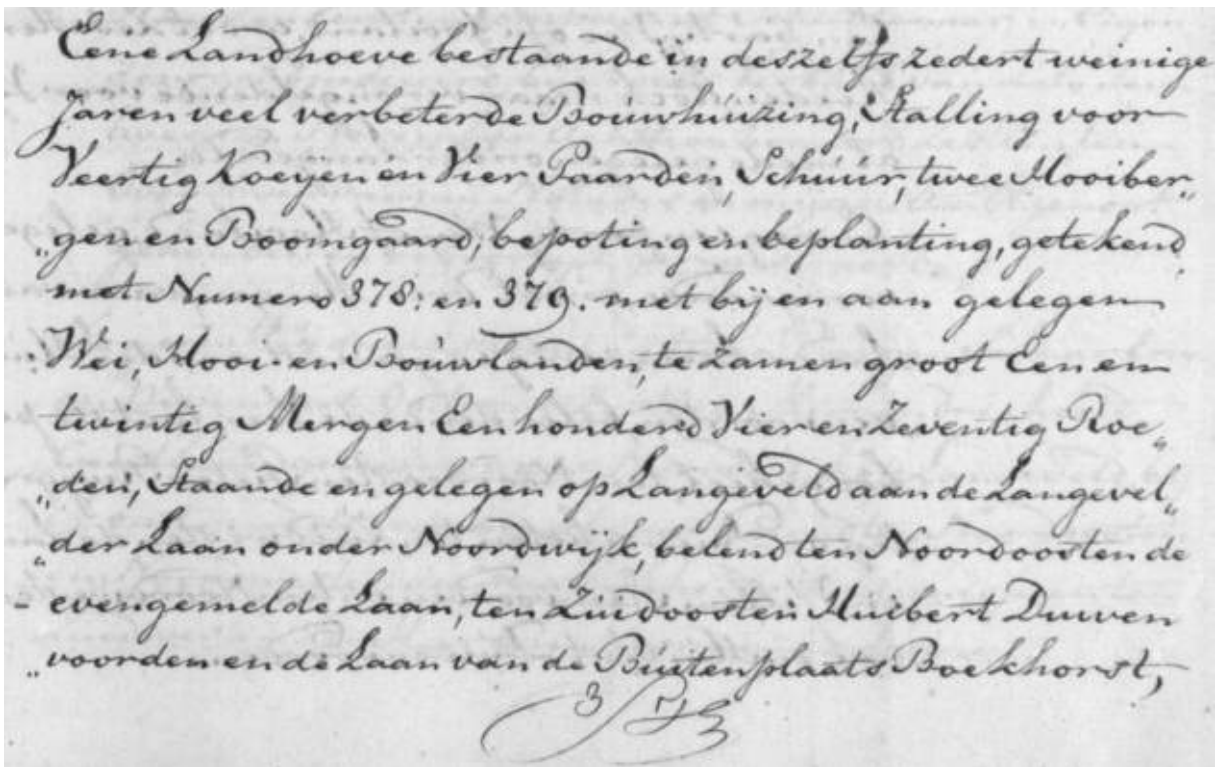 Eene Landhoeve bestaande in deszelfs zedert weinige
Jaren veel verbeterde Bouwhuizing, Stalling voor
Veertig Koeyen en Vier Paarden, Schuur, twee Hooiber„
„gen en Boomgaard, bepoting en beplanting, getekend
met Numero 378: en 379. met bij en aan gelegen
Wei, Hooi- en Bouwlanden, te zamen groot Een en
twintig Mergen Een honderd Vier en Zeventig Roe„
„den, Staande en gelegen op Langeveld aan de Langevel„
„der Laan onder Noordwijk, belend ten Noordoosten de
evengemelde Laan, ten Zuidoosten Huibert Duwen
„voorden en de Laan van de Buitenplaats Boekhorst,
3